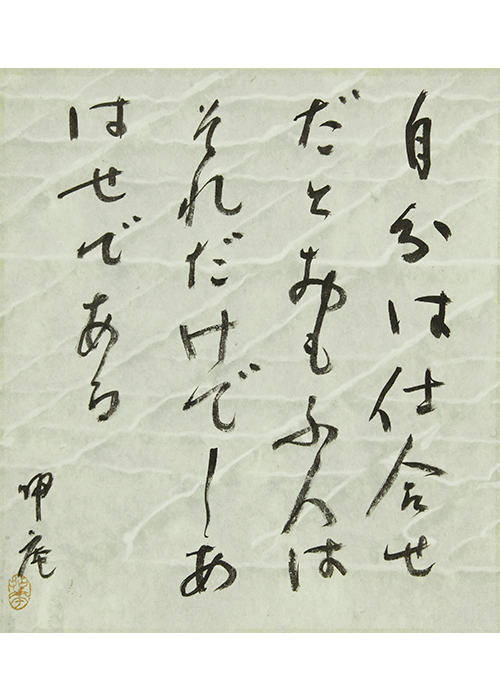 自分は仕合せ
だとおもふ人は
それだけでしあ
はせである
呷庵